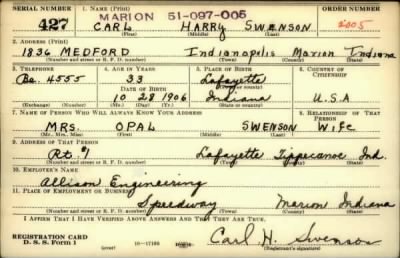 SERIAL NUMBER 1. NAME (Print) ORDER NUMBER
MARION 51-097-005
427 CARL HARRY SWENSON 2005
(First) (Middle) (Last)
2. ADDRESS (Print)
1836 MEDFORD Indianapolis Marion Indiana
(Number and street or R. F. D. number) (Town) (County) (State)
3. TELEPHONE 4. AGE IN YEARS 5. PLACE OF BIRTH 6. COUNTRY OF CITIZENSHIP
Be. 4555 33 Lafayette
DATE OF BIRTH (Town or county)
10 28 1906 Indiana U.S.A
(Exchange) (Number) (Mo.) (Day) (Yr.) (State or country)
7. NAME OF PERSON WHO WILL ALWAYS KNOW YOUR ADDRESS 8. RELATIONSHIP OF THAT PERSON
MRS. OPAL SWENSON Wife
(Mr., Mrs., Miss) (First) (Middle) (Last)
9. ADDRESS OF THAT PERSON
Rt. #1 Lafayette Tippecanoe Ind.
(Number and street or R. F. D. number) (Town) (County) (State)
10. EMPLOYER'S NAME
Allison Engineering
11. PLACE OF EMPLOYMENT OR BUSINESS
Speedway Marion Indiana
(Number and street or R. F. D. number) (Town) (County) (State)
I AFFIRM THAT I HAVE VERIFIED ABOVE ANSWERS AND THAT THEY ARE TRUE.
REGISTRATION CARD
D. S. S. Form 1 16-17105 Carl H. Swenson
(Registrant's signature)